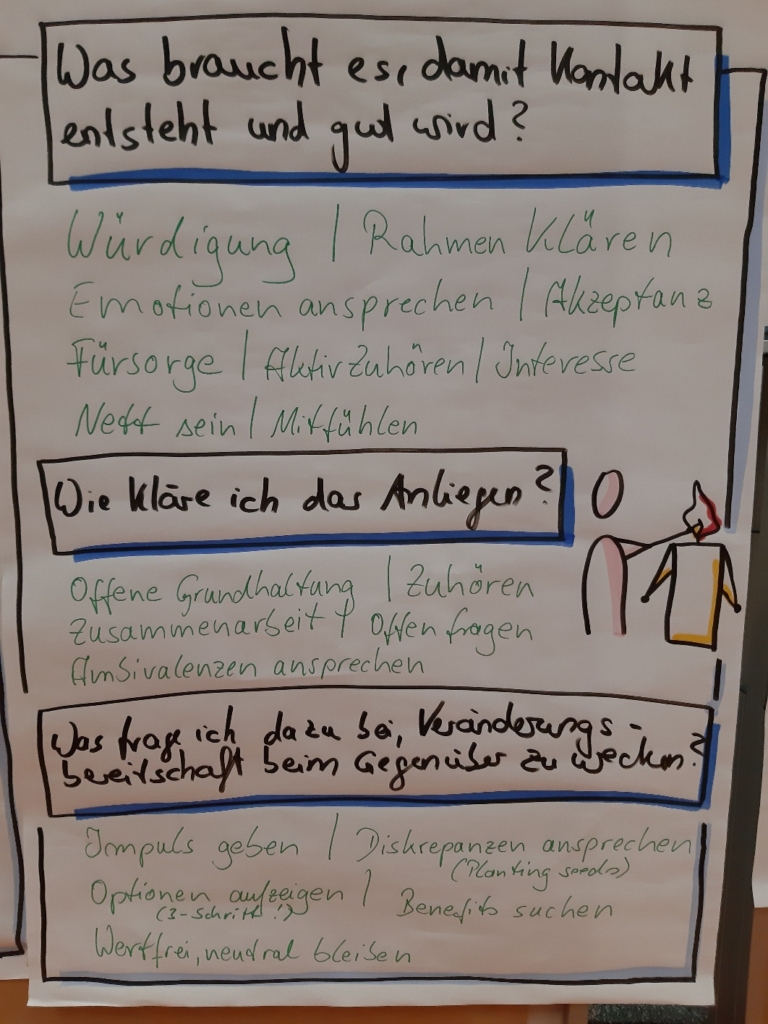 Was braucht es, damit Kontakt
entsteht und gut wird?
Würdigung | Rahmen Klären
Emotionen ansprechen | Akzeptanz
Fürsorge | Aktiv Zuhören | Interesse
Nett sein | Mitfühlen
Wie kläre ich das Anliegen?
Offene Grundhaltung | Zuhören
Zusammenarbeit | Offen fragen
Ambivalenzen ansprechen
Was frage ich dazu bei, Veränderungs-
bereitschaft beim Gegenüber zu wecken?
Impuls geben | Diskrepanzen ansprechen
(Planting seeds)
Optionen aufzeigen | Benefits suchen
(3-Schritt!)
Wertfrei, neutral bleiben